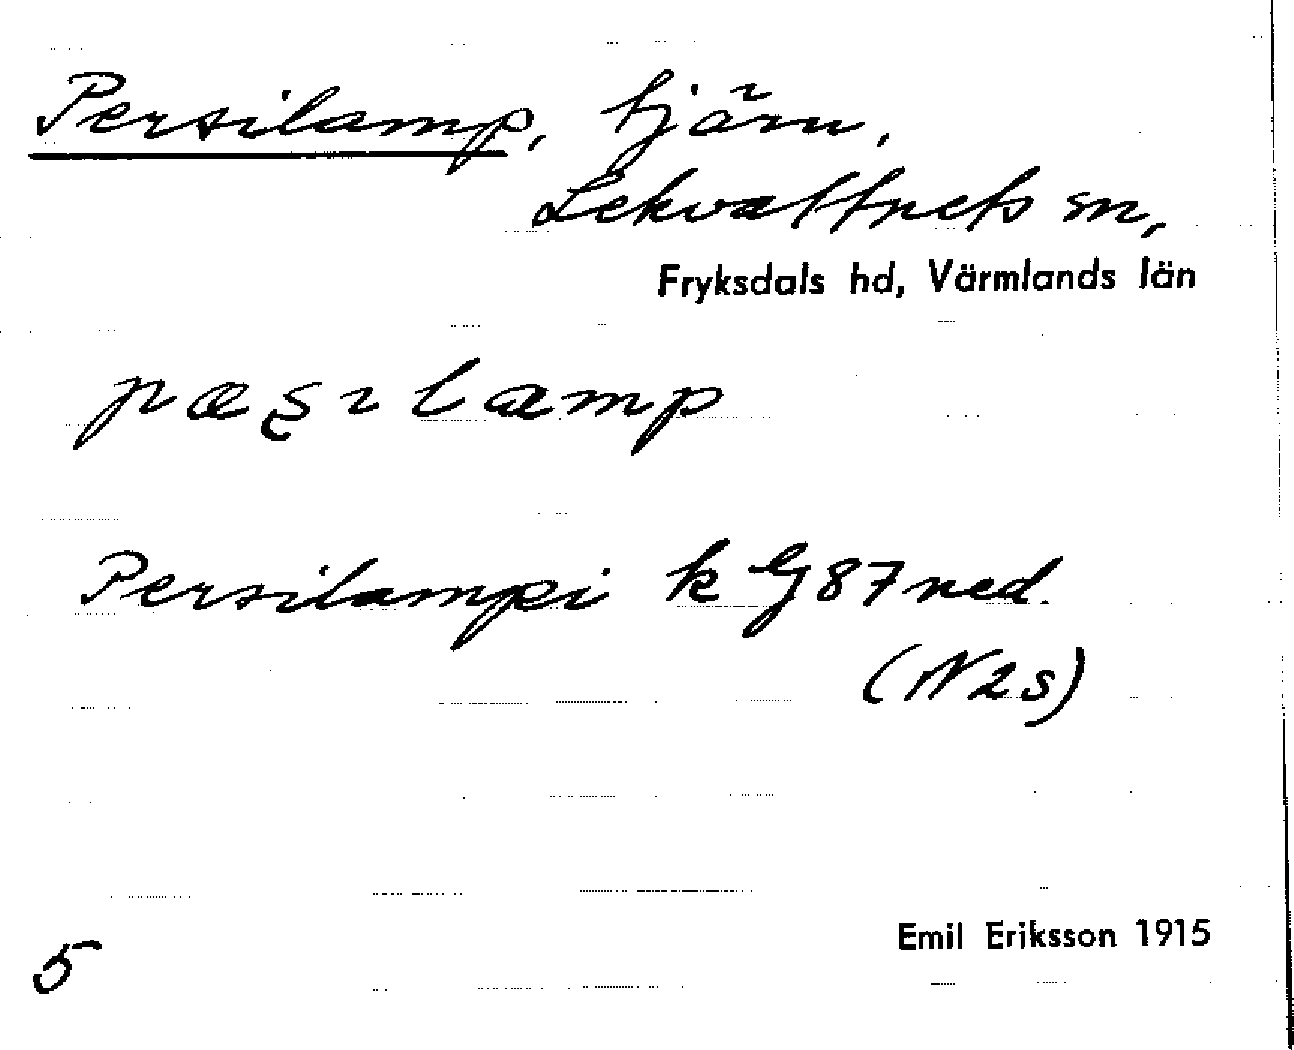 Persilamp, tjärn,
Lekvattnets sn,
Fryksdals hd, Värmlands län
pæʂılamp
Persilampi k G 87 ned.
(N2s)
Emil Eriksson 1915
5